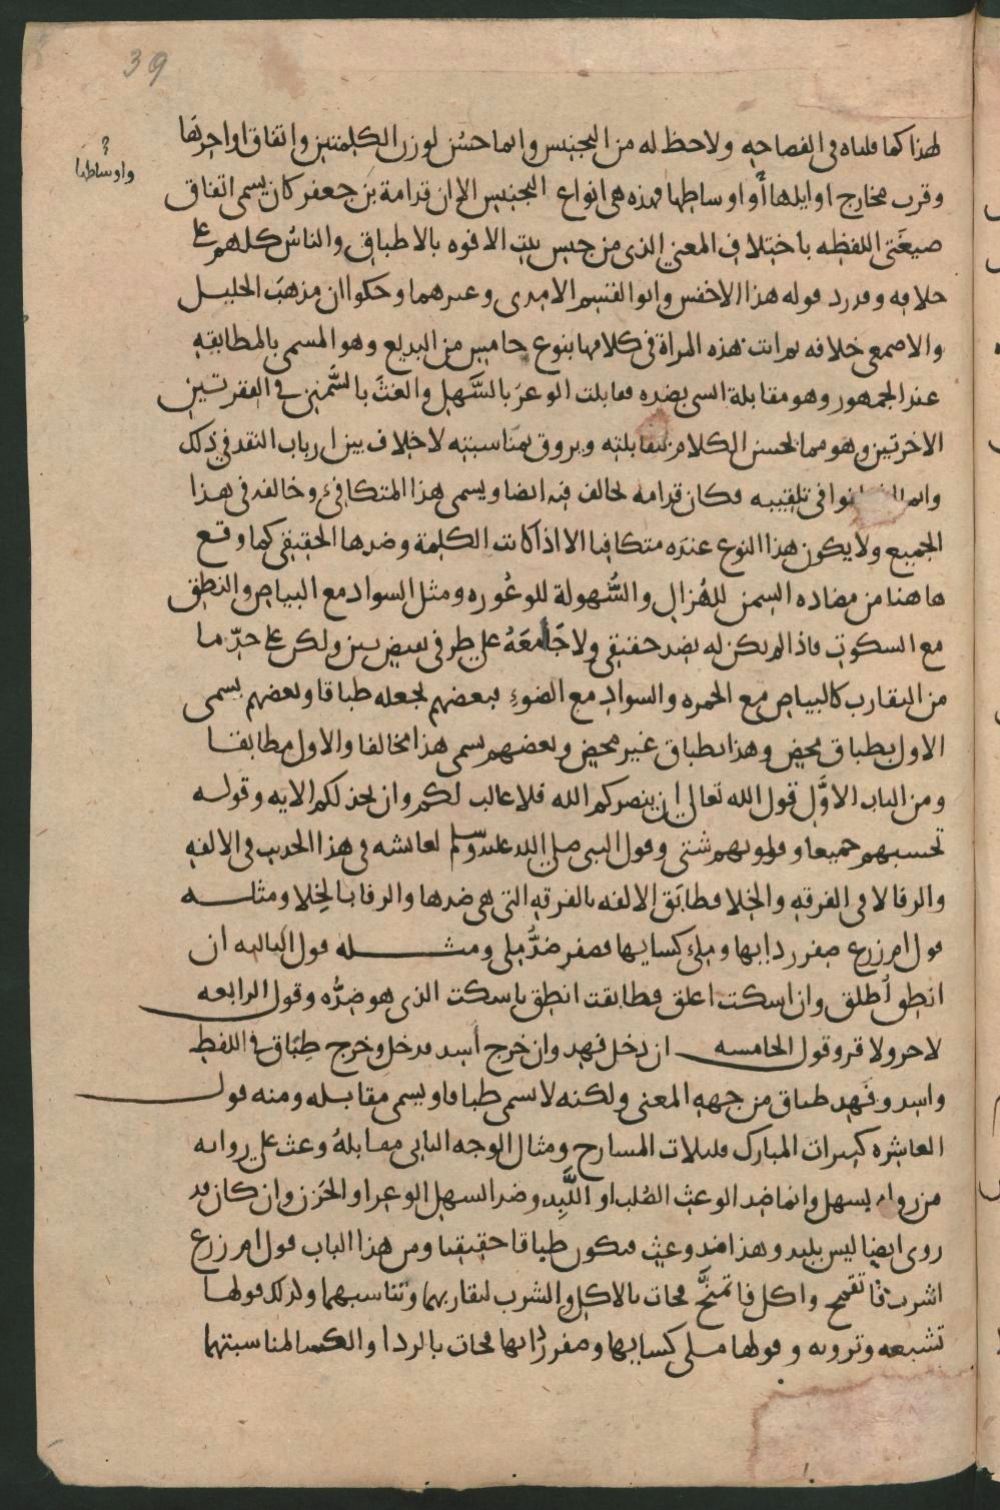 39
لهذا كما قلناه فى الفصاحه ولاحظ له من التجنيس وانما حسُن لوزن الكلمتين واتفاق اواخرها
؟ واوساطها
وقرب مخارج اوايلها أو اوساطها فهذه هى انواع التجنيس الا ان قدامة بن جعفر كان يسمى اتفاق
صيغَتى اللفظه باختلاف المعنى الذى من جنس بيت الافوه بالاطباق والناسُ كلهم على
خلافه وقد رد قوله هذا الاخفس وابو القسم الامدى وغيرهما وحكوا ان مذهبَ الخليل
والاصمعى خلافه ثم اتت هذه المراة فى كلامها بنوع خامس من البديع وهو المسمى بالمطابقه
عند الجمهور وهو مقابلة الشى بضده فقابلت الوعرَ بالسَّهل والغثَّ بالسَّمين فى الفقرتين
الاخرتين وهو مما يحسن الكلام بمقابلته ويروق بمناسبته لا خلاف بين ارباب النقد فى ذلك
وانما فى تلقيبه فكان قدامه يخالف فيه ايضا ويسمى هذا المتكافئ وخالفه فى هذا
الجميع ولا يكون هذا النوع عنده متكافيا الا اذا كانت الكلمة وضدها الحقيقى كما وقع
هاهنا من مضاده السمن للهُزال والسُّهولة للوعُوره ومثل السواد مع البياض والنطق
مع السكوت فاذا لم يكن له بضد حقيقى ولا جَامعَهُ على طرفى نقيض بين ولكن على حدّ ما
من التقارب كالبياض مع الحمره والسواد مع الضوءِ فبعضهم يجعله طباقا وبعضهم يسمى
الاول بطباق محض وهذا بطباق غير محض وبعضهم يسمى هذا مخالفا والاول مطابقا
ومن الباب الاوَّل قول الله تعالى ان ينصركم الله فلا غالب لكم وان يخذلكم الايه وقوله
تحسبهم جميعا وقلوبهم شتى وقول النبى صلى الله عليه وسلم لعائشه فى هذا الحديث فى الالفه
والرفا لا فى الفرقه والخِلا فطابَق الالفه بالفرقه التى هى ضدها والرفا بالخِلا ومثله
قول ام زرع صفر ردايها وملئ كسايها فصفر ضدُّ ملى ومثله قول الثالثه ان
انطق أطلق وان اسكت اعلق فطابقت انطق باسكت الذى هو ضدُّه وقول الرابعه
لا حر ولا قر وقول الخامسه ان دخل فهد وان خرج أسِد فدخل وخرج طِبَاق فى اللفظ
واسِد وفَهِد طباق من جهه المعنى ولكنه لا يسمى طباقا ويسمى مقابله ومنه قول
العاشره كثيرات المبارك قليلات المسارح ومثال الوجه الثانى مقابلهُ وعث على روايه
من رواه بسهل وانما ضد الوعث الصُلب او اللَّبِد وضد السهل الوعر او الحَزن وان كان قد
روى ايضا ليس بلبد وهذا ضد وعث فيكون طباقا حقيقيا ومن هذا الباب قول ام زرع
اشرب فاتقمح واكل فاتمنَّح فجات بالاكل والشرب لتقاربهما وتناسبهما ولذلك قولها
تشبعه وترويه وقولها ملى كسايها وصفر ردايها فجات بالردا والكسا لمناسبتهما